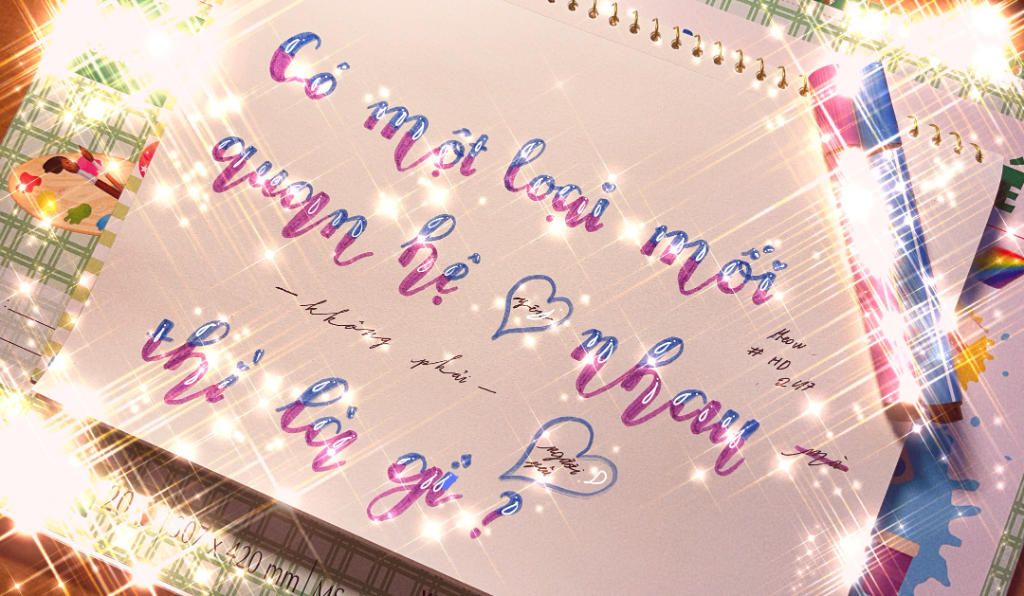 Có một loại mối
quan hệ yêu nhau
– không phải –
thì là gì ?
người yêu :D
Meow
# HD
247
mà
20
420 mm | MS
E